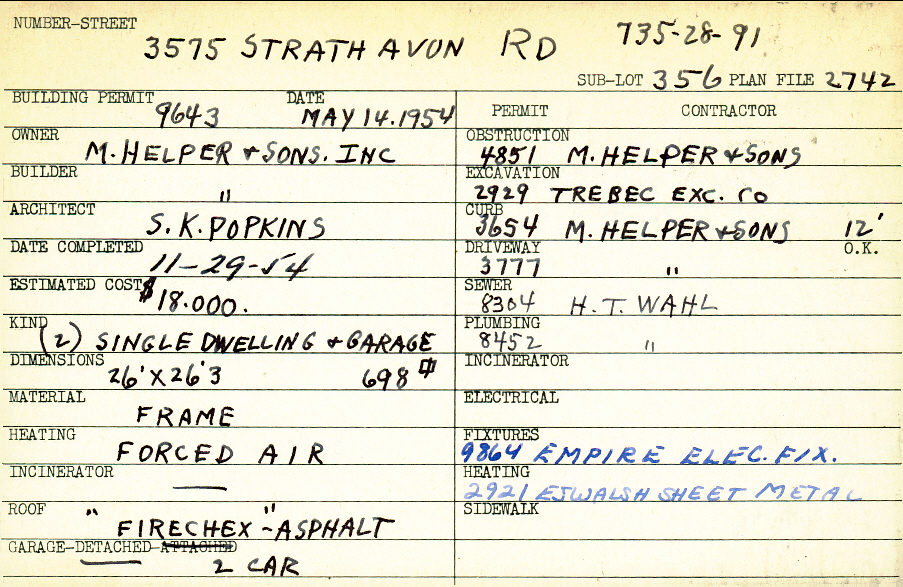 NUMBER-STREET
3575 STRATHAVON RD 735-28-91
SUB-LOT 356 PLAN FILE 2742
BUILDING PERMIT DATE
9643 MAY 14.1954
OWNER
M. HELPER & SONS. INC
BUILDER
"
ARCHITECT
S. K. POPKINS
DATE COMPLETED
11-29-54
ESTIMATED COST
$18.000.
KIND
(2) SINGLE DWELLING & GARAGE
DIMENSIONS
26' X 26'3 698 ⌷
MATERIAL
FRAME
HEATING
FORCED AIR
INCINERATOR
—
ROOF
" FIRECHEX " - ASPHALT
GARAGE-DETACHED-ATTACHED
2 CAR
PERMIT CONTRACTOR
OBSTRUCTION
4851 M. HELPER & SONS
EXCAVATION
2929 TREBEC EXC. CO
CURB
3654 M. HELPER & SONS 12'
DRIVEWAY O.K.
3777 "
SEWER
8304 H. T. WAHL
PLUMBING
8452 "
INCINERATOR
ELECTRICAL
FIXTURES
9864 EMPIRE ELEC. FIX.
HEATING
2921 EJWALSH SHEET METAL
SIDEWALK